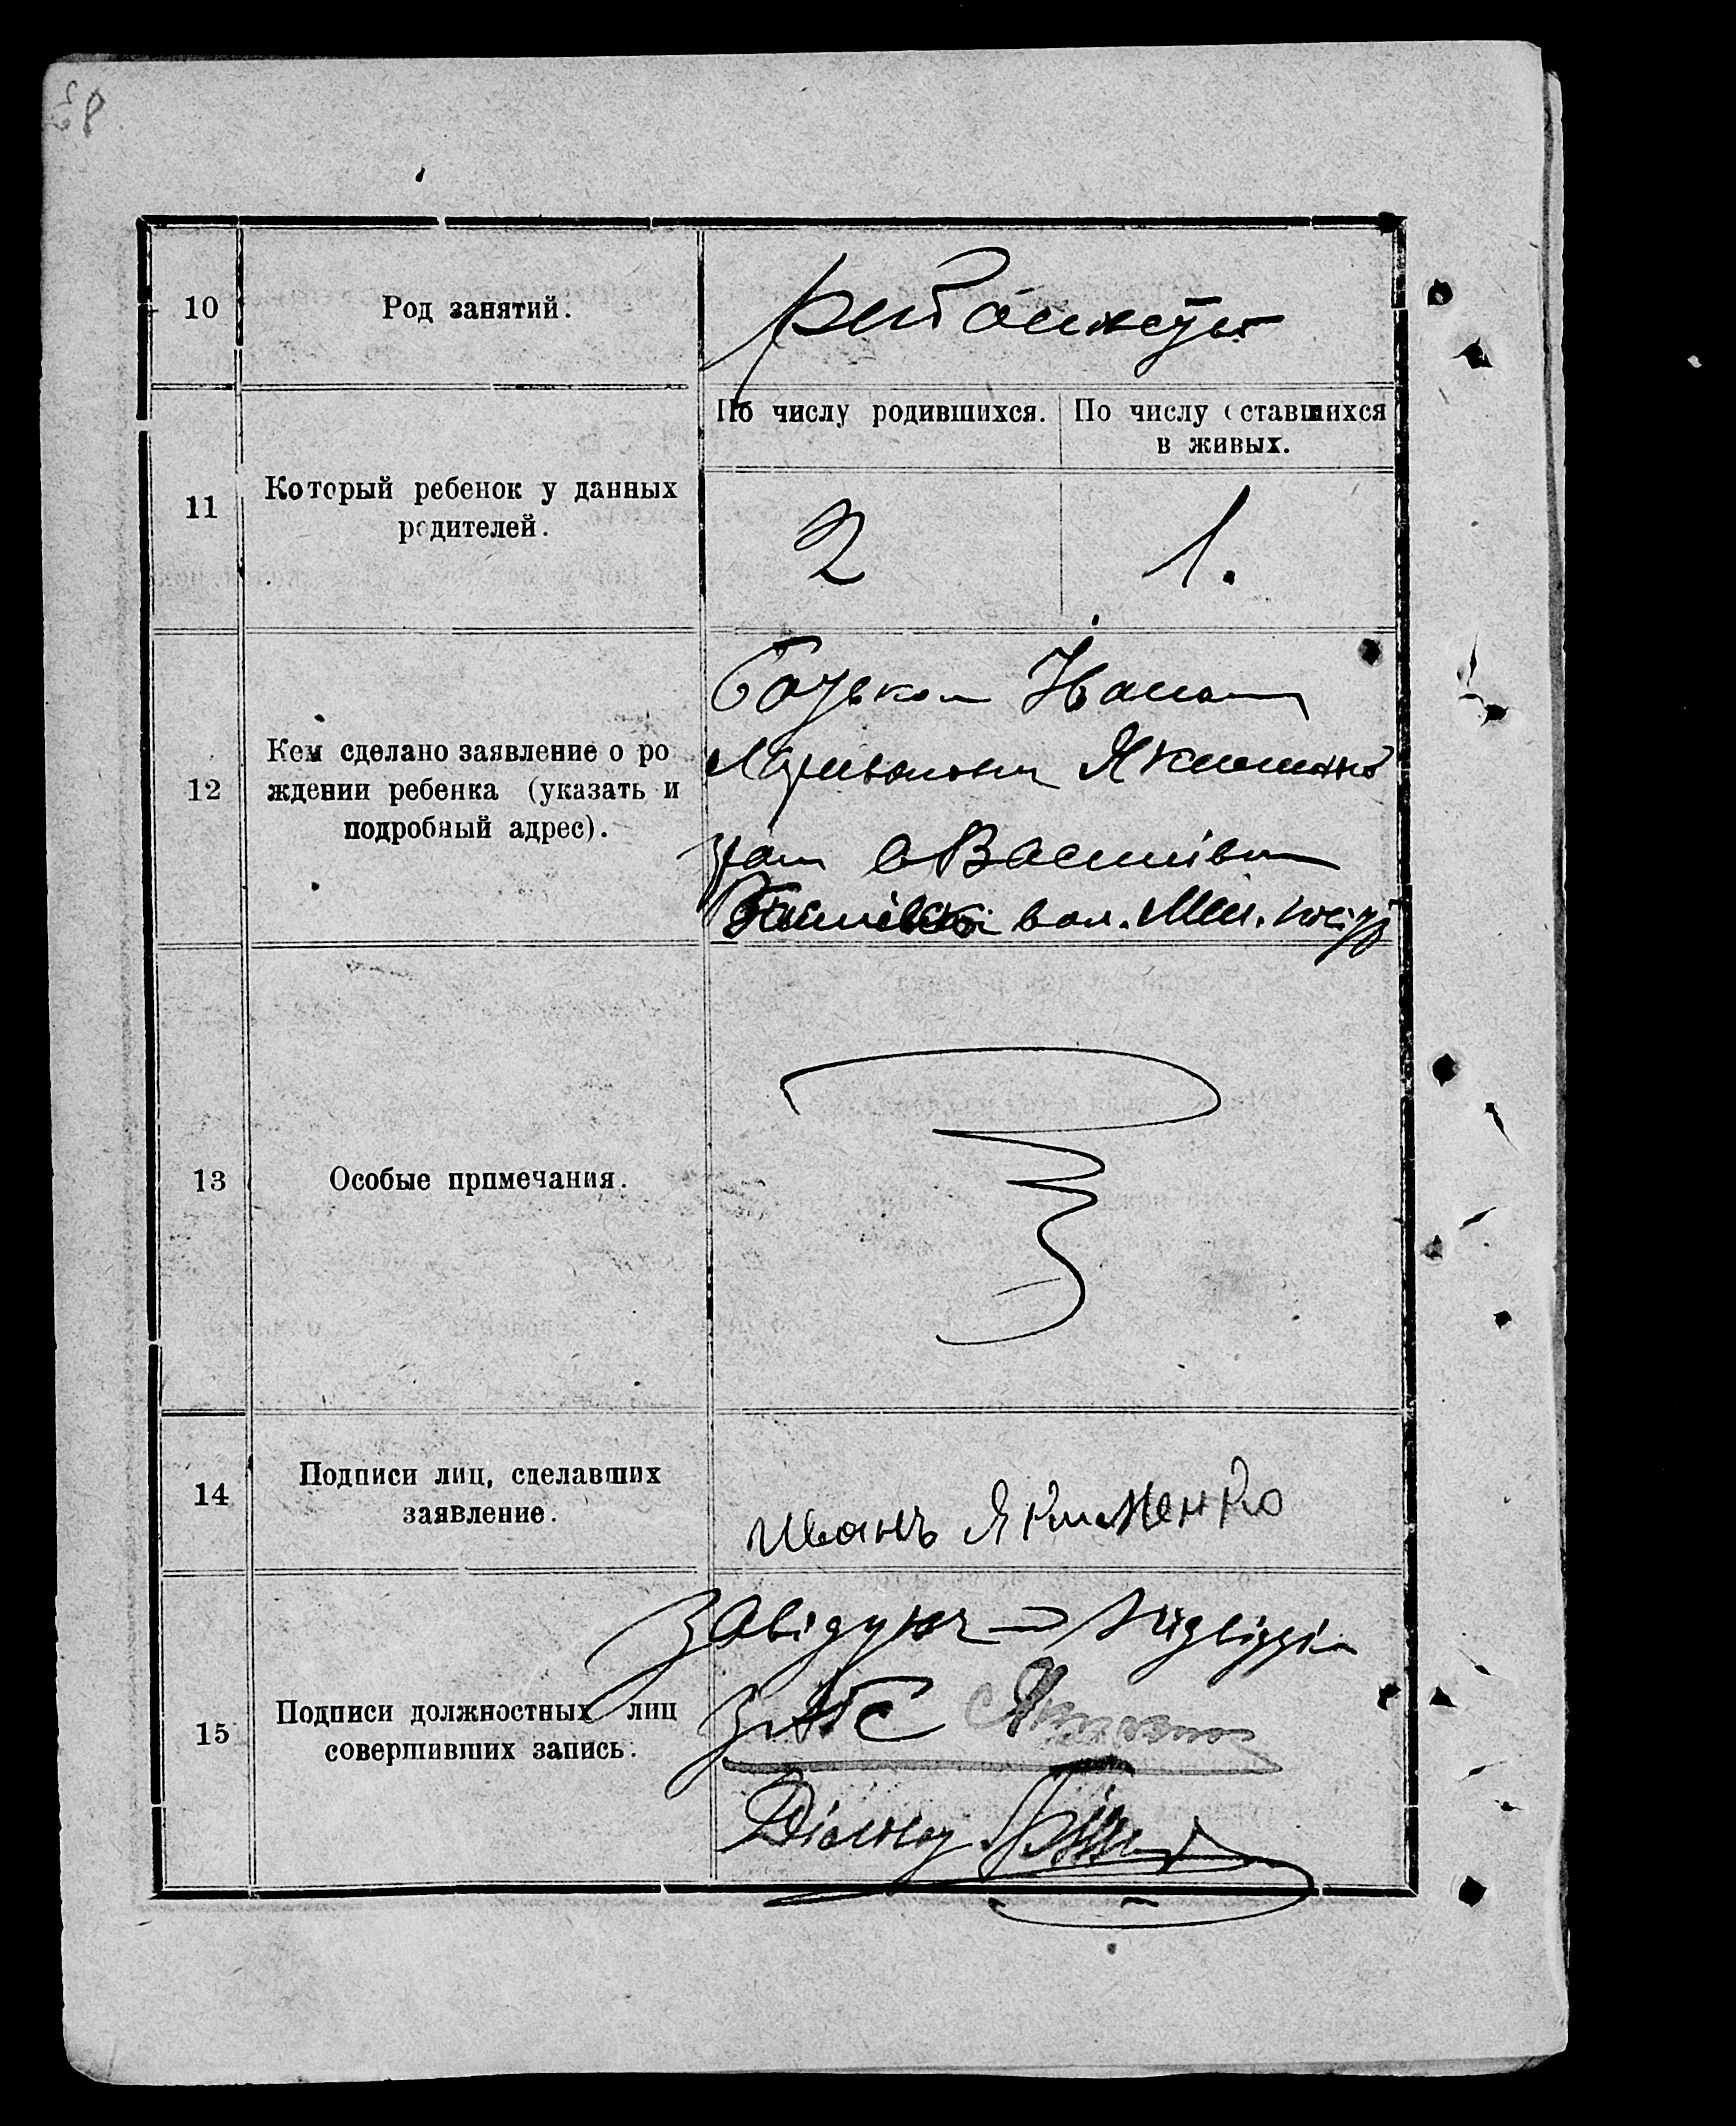 10
Род занятий.
11
Который ребенок у данных
родителей.
По числу родившихся.
По числу оставшихся
в живых.
2
1.
12
Кем сделано заявление о ро
ждении ребенка (указать и
подробный адрес).
Батьком Іваном
Якименко
гром с Василівки
вол. Мик. повіту
13
Особые примечания.
14
Подписи лиц, сделавших
заявление.
Иванъ Якименко
15
Подписи должностных лиц
совершивших запись.
Завідуюч підвідділ
ЗАГС
Діловод